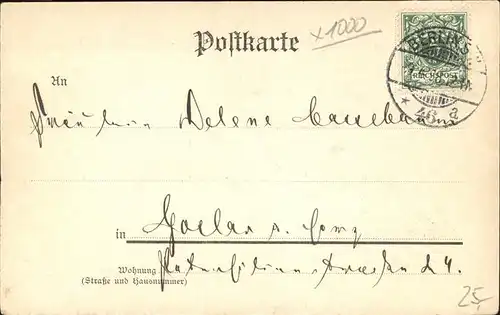 x1000
Postkarte
BERLIN S.
REICHSPOST
46 a
An
Fräulein Helene
in Goslar a. Harz
Wohnung
(Straße und Hausnummer)
24.
25,